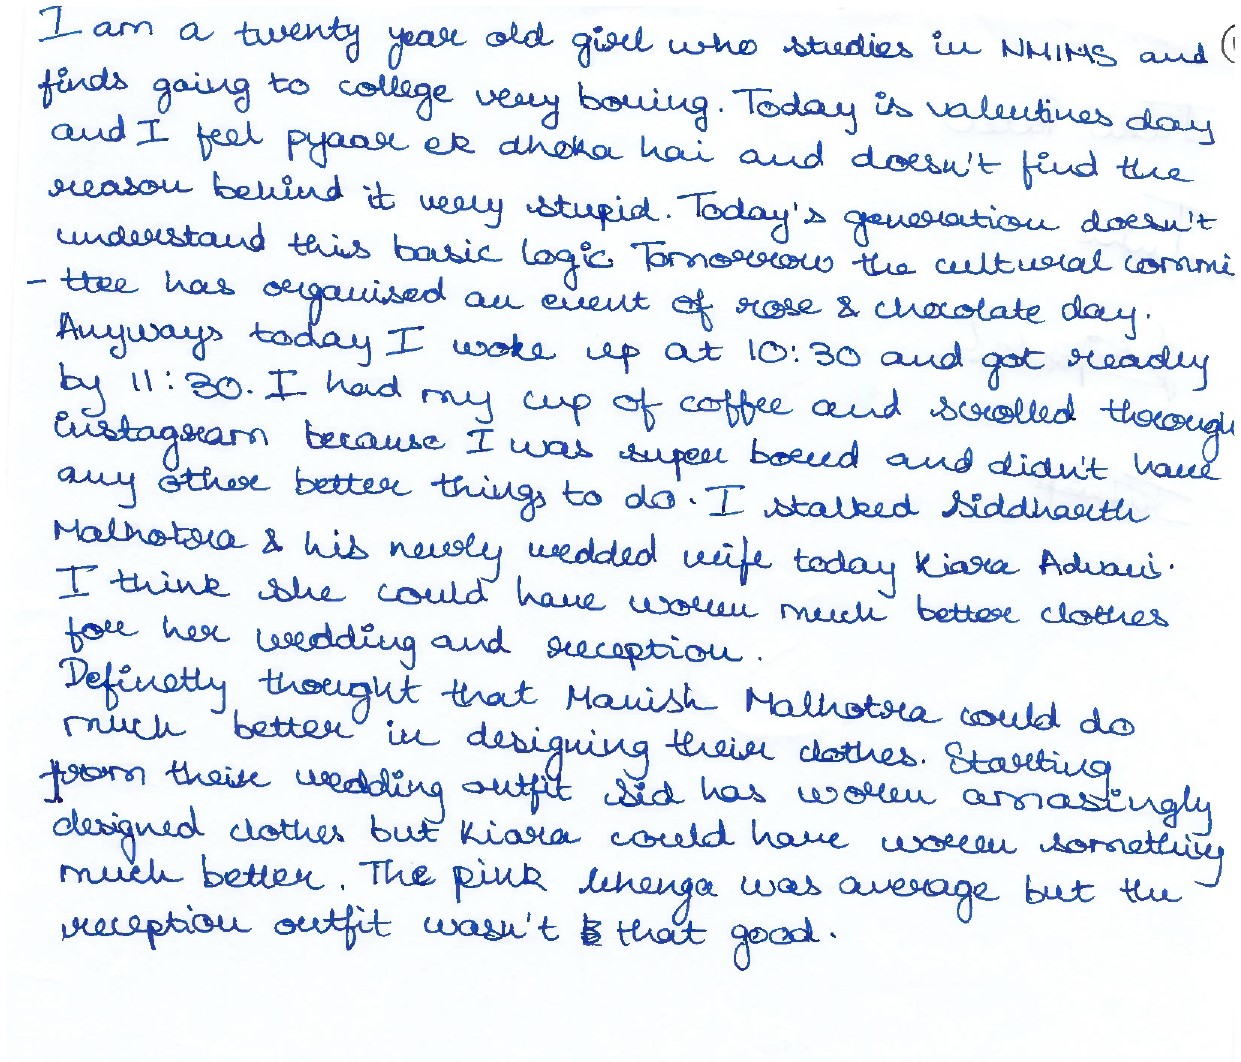 I am a twenty year old girl who studies in NMIMS and
finds going to college very boring. Today is valentines day
and I feel pyaar ek dhoka hai and doesn't find the
reason behind it very stupid. Today's generation doesn't
understand this basic logic Tomorrow the cultural commi
- ttee has organised an event of rose & chocolate day.
Anyways today I woke up at 10:30 and got ready
by 11:30. I had my cup of coffee and scrolled through
instagram because I was super bored and didn't have
any other better things to do. I stalked Siddharth
Malhotra & his newly wedded wife today Kiara Advani.
I think she could have worn much better clothes
for her wedding and reception.
Definetly thought that Manish Malhotra could do
much better in designing their clothes. Starting
from their wedding outfit Sid has worn amasingly
designed clothes but Kiara could have worn something
much better. The pink lehenga was average but the
reception outfit wasn't that good.